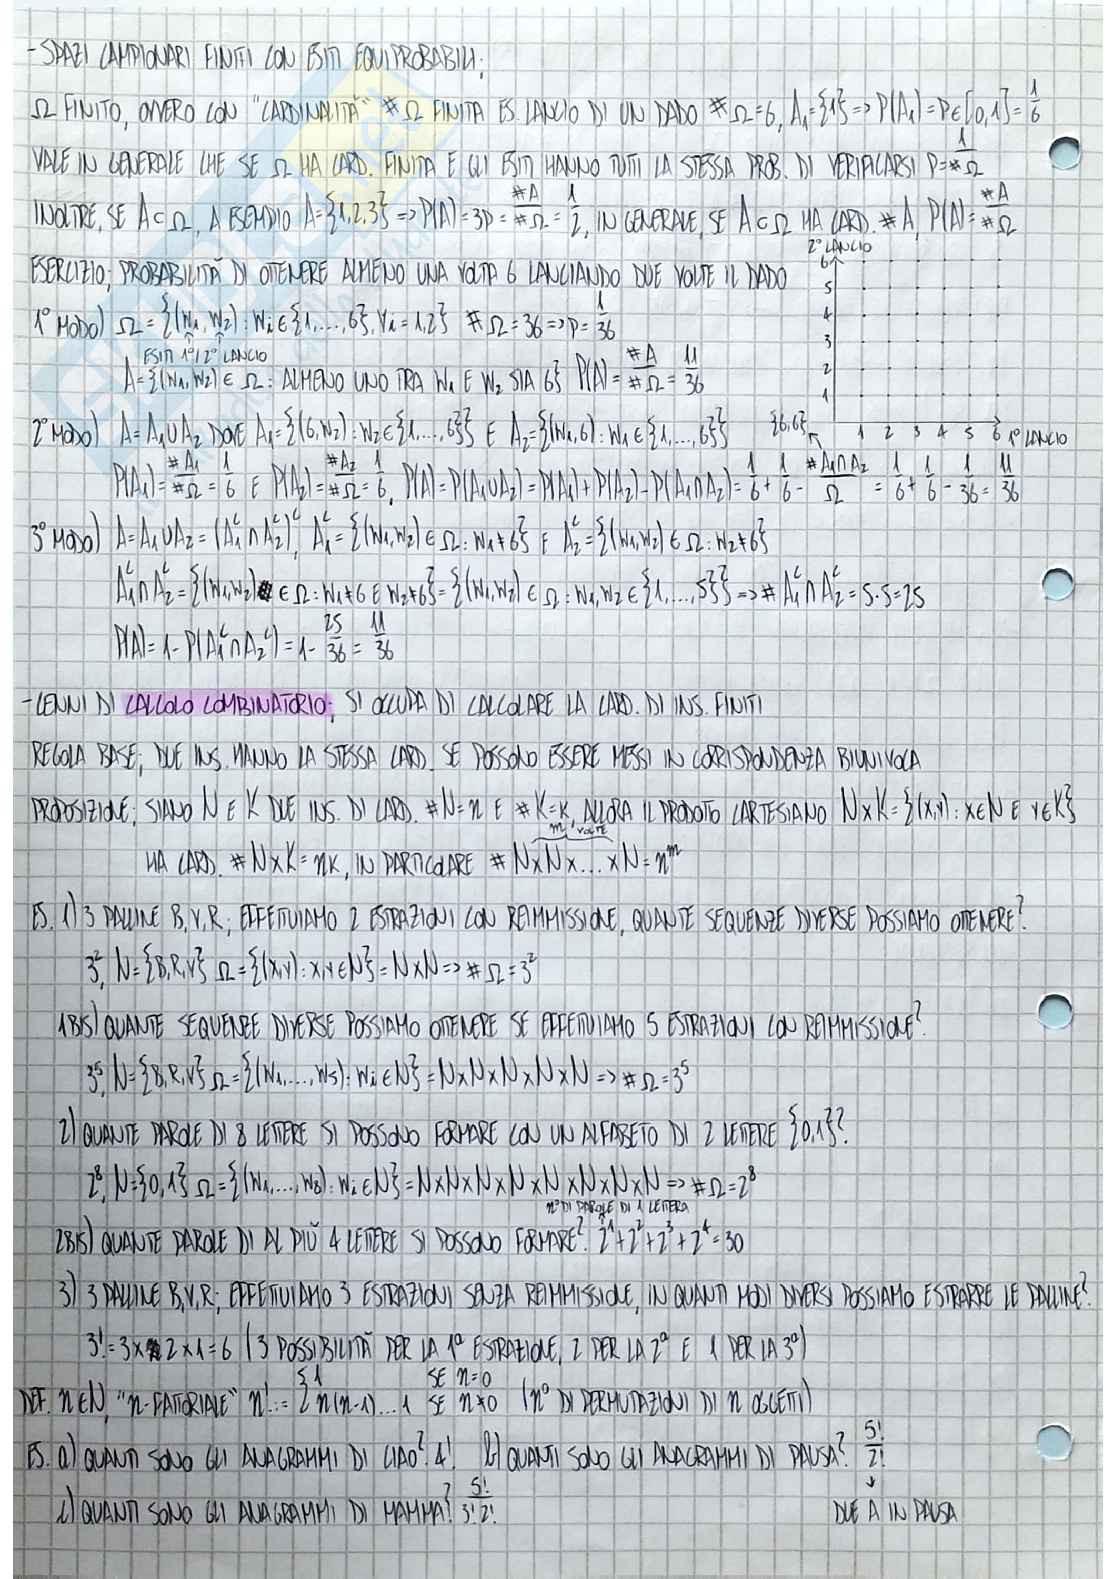 - SPAZI CAMPIONARI FINITI CON ESITI EQUIPROBABILI:
Ω FINITO, OVVERO CON "CARDINALITÀ" #Ω FINITA ES. LANCIO DI UN DADO #Ω=6, A₁={1} => P(A₁)=P∈[0,1]=1/6
VALE IN GENERALE CHE SE Ω HA CARD. FINITA E GLI ESITI HANNO TUTTI LA STESSA PROB. DI VERIFICARSI P=1/#Ω
INOLTRE, SE A⊂Ω, A ESEMPIO A={1,2,3} => P(A)=3P=#A/#Ω=1/2, IN GENERALE, SE A⊂Ω HA CARD. #A, P(A)=#A/#Ω
ESERCIZIO: PROBABILITÀ DI OTTENERE ALMENO UNA VOLTA 6 LANCIANDO DUE VOLTE IL DADO
2° LANCIO
6
5
4
3
2
1
1 2 3 4 5 6 1° LANCIO
{6,6}
1° MODO) Ω={(W₁,W₂): Wᵢ∈{1,...,6}, ∀i=1,2} #Ω=36 => P=1/36
ESITI 1°/2° LANCIO
A={(W₁,W₂)∈Ω: ALMENO UNO TRA W₁ E W₂ SIA 6} P(A)=#A/#Ω=11/36
2° MODO) A=A₁∪A₂ DOVE A₁={(6,W₂): W₂∈{1,...,6}} E A₂={(W₁,6): W₁∈{1,...,6}}
P(A₁)=#A₁/#Ω=1/6 E P(A₂)=#A₂/#Ω=1/6, P(A)=P(A₁∪A₂)=P(A₁)+P(A₂)-P(A₁∩A₂)=1/6+1/6-#A₁∩A₂/Ω=1/6+1/6-1/36=11/36
3° MODO) A=A₁∪A₂=(A₁ᶜ∩A₂ᶜ)ᶜ, A₁ᶜ={(W₁,W₂)∈Ω: W₁≠6} E A₂ᶜ={(W₁,W₂)∈Ω: W₂≠6}
A₁ᶜ∩A₂ᶜ={(W₁,W₂)∈Ω: W₁≠6 E W₂≠6}={(W₁,W₂)∈Ω: W₁,W₂∈{1,...,5}} => #A₁ᶜ∩A₂ᶜ=5·5=25
P(A)=1-P(A₁ᶜ∩A₂ᶜ)=1-25/36=11/36
- CENNI DI CALCOLO COMBINATORIO: SI OCCUPA DI CALCOLARE LA CARD. DI INS. FINITI
REGOLA BASE: DUE INS. HANNO LA STESSA CARD. SE POSSONO ESSERE MESSI IN CORRISPONDENZA BIUNIVOCA
PROPOSIZIONE: SIANO N E K DUE INS. DI CARD. #N=n E #K=K, ALLORA IL PRODOTTO CARTESIANO N×K={(X,Y): X∈N E Y∈K}
m VOLTE
HA CARD. #N×K=nK, IN PARTICOLARE #N×N×...×N=nᵐ
ES. 1) 3 PALLINE B,V,R; EFFETTUIAMO 2 ESTRAZIONI CON REIMMISSIONE, QUANTE SEQUENZE DIVERSE POSSIAMO OTTENERE?
3², N={B,R,V} Ω={(X,Y): X,Y∈N}=N×N => #Ω=3²
1BIS) QUANTE SEQUENZE DIVERSE POSSIAMO OTTENERE SE EFFETTUIAMO 5 ESTRAZIONI CON REIMMISSIONE?
3⁵, N={B,R,V} Ω={(W₁,...,W₅): Wᵢ∈N}=N×N×N×N×N => #Ω=3⁵
2) QUANTE PAROLE DI 8 LETTERE SI POSSONO FORMARE CON UN ALFABETO DI 2 LETTERE {0,1}?
2⁸, N={0,1} Ω={(W₁,...,W₈): Wᵢ∈N}=N×N×N×N×N×N×N×N => #Ω=2⁸
n° DI PAROLE DI 1 LETTERA
2BIS) QUANTE PAROLE DI AL PIÙ 4 LETTERE SI POSSONO FORMARE? 2¹+2²+2³+2⁴=30
3) 3 PALLINE B,V,R; EFFETTUIAMO 3 ESTRAZIONI SENZA REIMMISSIONE, IN QUANTI MODI DIVERSI POSSIAMO ESTRARRE LE PALLINE?
3!=3×2×1=6 (3 POSSIBILITÀ PER LA 1ª ESTRAZIONE, 2 PER LA 2ª E 1 PER LA 3ª)
DEF. n∈N, "n-FATTORIALE" n!:= { 1 SE n=0
n(n-1)...1 SE n≠0 (n° DI PERMUTAZIONI DI n OGGETTI)
ES. a) QUANTI SONO GLI ANAGRAMMI DI CIAO? 4! b) QUANTI SONO GLI ANAGRAMMI DI PAUSA? 5!/2!
c) QUANTI SONO GLI ANAGRAMMI DI MAMMA? 5!/3!2!
DUE A IN PAUSA